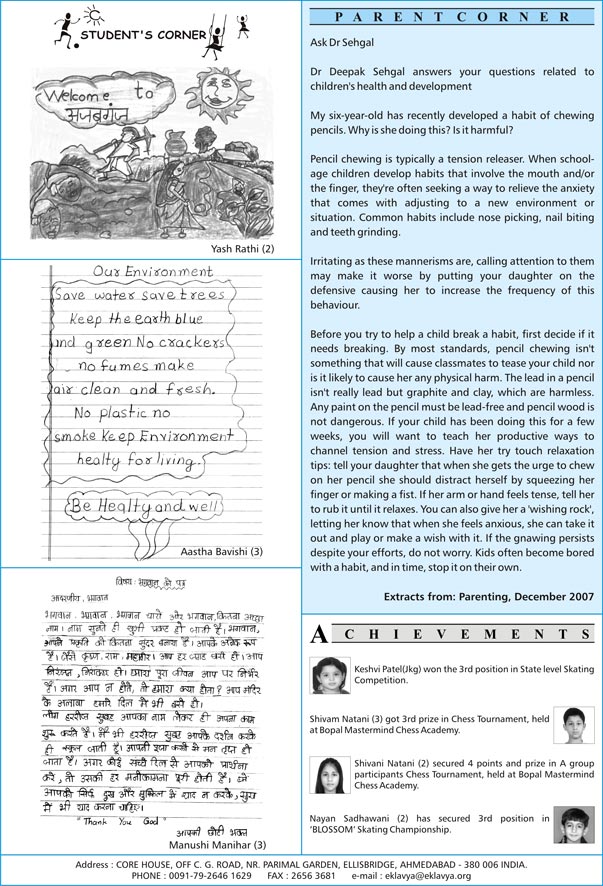 STUDENT'S CORNER
Welcome to
अजबगंज
Yash Rathi (2)
Our Environment
Save water save trees
Keep the earth blue
and green No crackers
no fumes make
air clean and fresh.
No plastic no
smoke Keep Environment
healty for living.
Be Healty and well
Aastha Bavishi (3)
विषय : भगवान को पत्र
आदरणीय, भगवान
भगवान, भगवान, भगवान चारो और भगवान, कितना अच्छा
नाम। नाम सुनते ही खुशी प्रकट हो जाती है। भगवान,
आपने प्रकृति को कितना सुंदर बनाया है। आपके अनेक रूप
है। जैसे कृष्ण, राम, महावीर। आप हर जगह बसे हो। आप
निरंजन, निराकार हो। हमारा पूरा जीवन आप पर निर्भर
है। अगर आप न होते, तो हमारा क्या होता? आप मंदिर
के अलावा हमारे दिल में भी बसे हो।
लोग हररोज सुबह आपका नाम लेकर ही अपना काम
शुरू करते है। मैं भी हररोज सुबह आपके दर्शन करके
ही स्कूल जाती हूँ। आपकी पूजा करने से मन तृप्त हो
जाता है। अगर कोई सच्चे दिल से आपकी प्रार्थना
करे, तो उसकी हर मनोकामना पूरी होती है। हमे
आपको सिर्फ दुख और मुश्किल में याद न करके, सुख
में भी याद करना चाहिए।
"Thank You God"
आपकी छोटी भक्त
Manushi Manihar (3)
PARENT CORNER
Ask Dr Sehgal
Dr Deepak Sehgal answers your questions related to
children's health and development
My six-year-old has recently developed a habit of chewing
pencils. Why is she doing this? Is it harmful?
Pencil chewing is typically a tension releaser. When school-
age children develop habits that involve the mouth and/or
the finger, they're often seeking a way to relieve the anxiety
that comes with adjusting to a new environment or
situation. Common habits include nose picking, nail biting
and teeth grinding.
Irritating as these mannerisms are, calling attention to them
may make it worse by putting your daughter on the
defensive causing her to increase the frequency of this
behaviour.
Before you try to help a child break a habit, first decide if it
needs breaking. By most standards, pencil chewing isn't
something that will cause classmates to tease your child nor
is it likely to cause her any physical harm. The lead in a pencil
isn't really lead but graphite and clay, which are harmless.
Any paint on the pencil must be lead-free and pencil wood is
not dangerous. If your child has been doing this for a few
weeks, you will want to teach her productive ways to
channel tension and stress. Have her try touch relaxation
tips: tell your daughter that when she gets the urge to chew
on her pencil she should distract herself by squeezing her
finger or making a fist. If her arm or hand feels tense, tell her
to rub it until it relaxes. You can also give her a 'wishing rock',
letting her know that when she feels anxious, she can take it
out and play or make a wish with it. If the gnawing persists
despite your efforts, do not worry. Kids often become bored
with a habit, and in time, stop it on their own.
Extracts from: Parenting, December 2007
ACHIEVEMENTS
Keshvi Patel(Jkg) won the 3rd position in State level Skating
Competition.
Shivam Natani (3) got 3rd prize in Chess Tournament, held
at Bopal Mastermind Chess Academy.
Shivani Natani (2) secured 4 points and prize in A group
participants Chess Tournament, held at Bopal Mastermind
Chess Academy.
Nayan Sadhawani (2) has secured 3rd position in
'BLOSSOM' Skating Championship.
Address : CORE HOUSE, OFF C. G. ROAD, NR. PARIMAL GARDEN, ELLISBRIDGE, AHMEDABAD - 380 006 INDIA.
PHONE : 0091-79-2646 1629 FAX : 2656 3681 e-mail : eklavya@eklavya.org